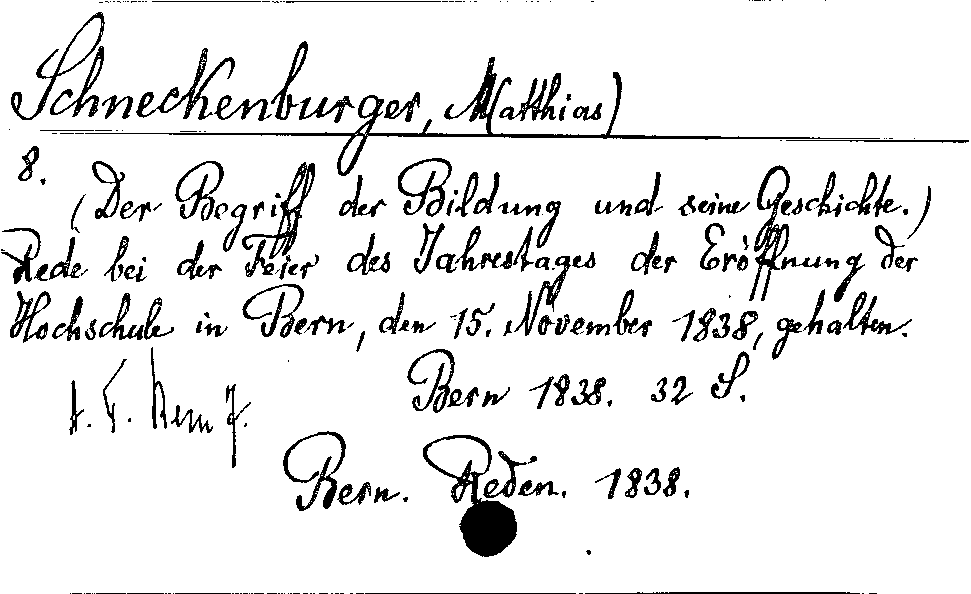 Schneckenburger, M(atthias)
8.
(Der Begriff der Bildung und seine Geschichte.)
Rede bei der Feier des Jahrestages der Eröffnung der
Hochschule in Bern, den 15. November 1838, gehalten.
Bern 1838. 32 S.
Bern 7.
Bern. Reden. 1838.